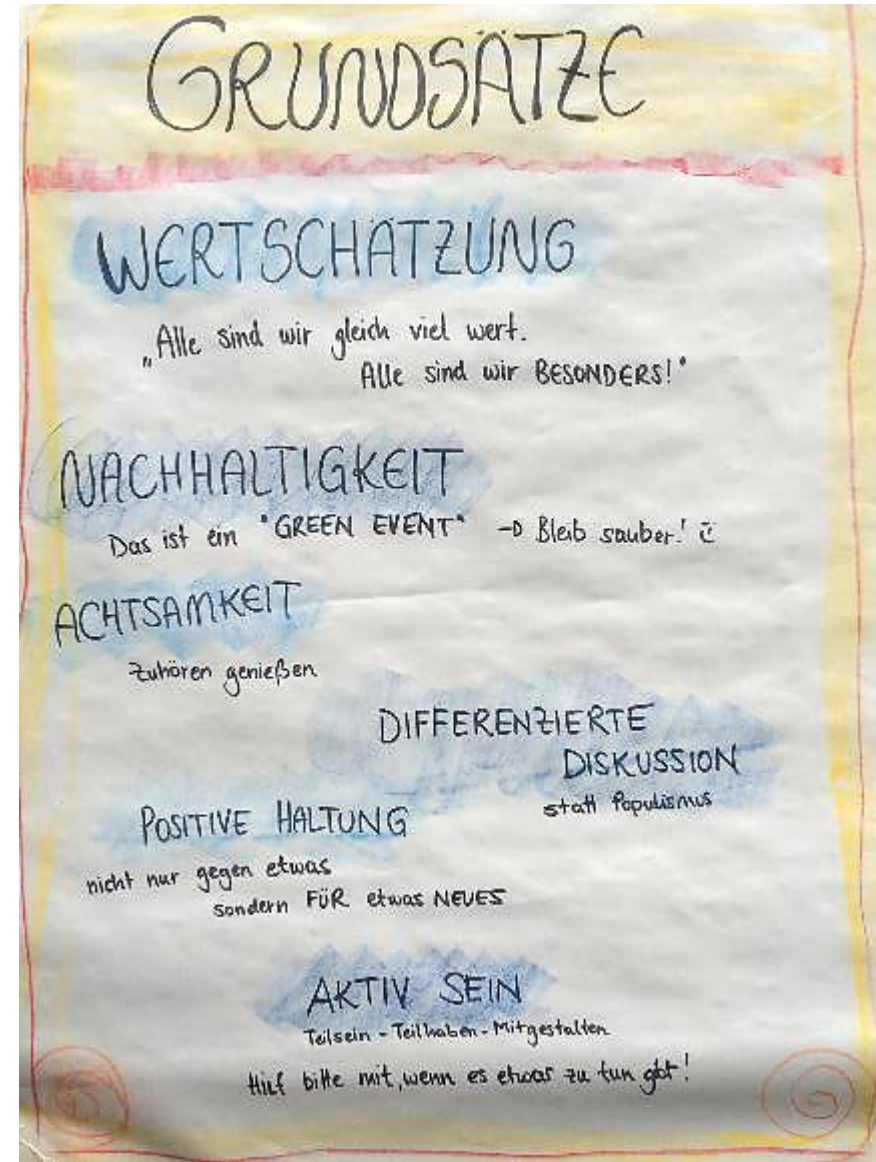 GRUNDSÄTZE
WERTSCHÄTZUNG
„Alle sind wir gleich viel wert.
Alle sind wir BESONDERS!"
NACHHALTIGKEIT
Das ist ein "GREEN EVENT" → Bleib sauber! ü
ACHTSAMKEIT
Zuhören genießen
DIFFERENZIERTE
DISKUSSION
statt Populismus
POSITIVE HALTUNG
nicht nur gegen etwas
sondern FÜR etwas NEUES
AKTIV SEIN
Teilsein - Teilhaben - Mitgestalten
Hilf bitte mit, wenn es etwas zu tun gbt!